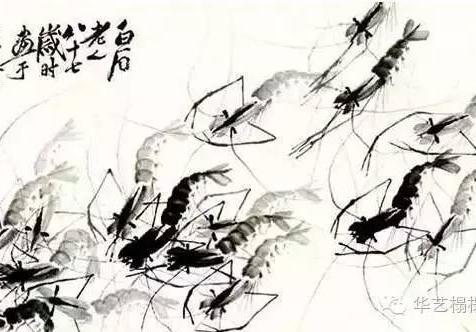 白石
老人
八十七
歲时
画于
华艺榻榻